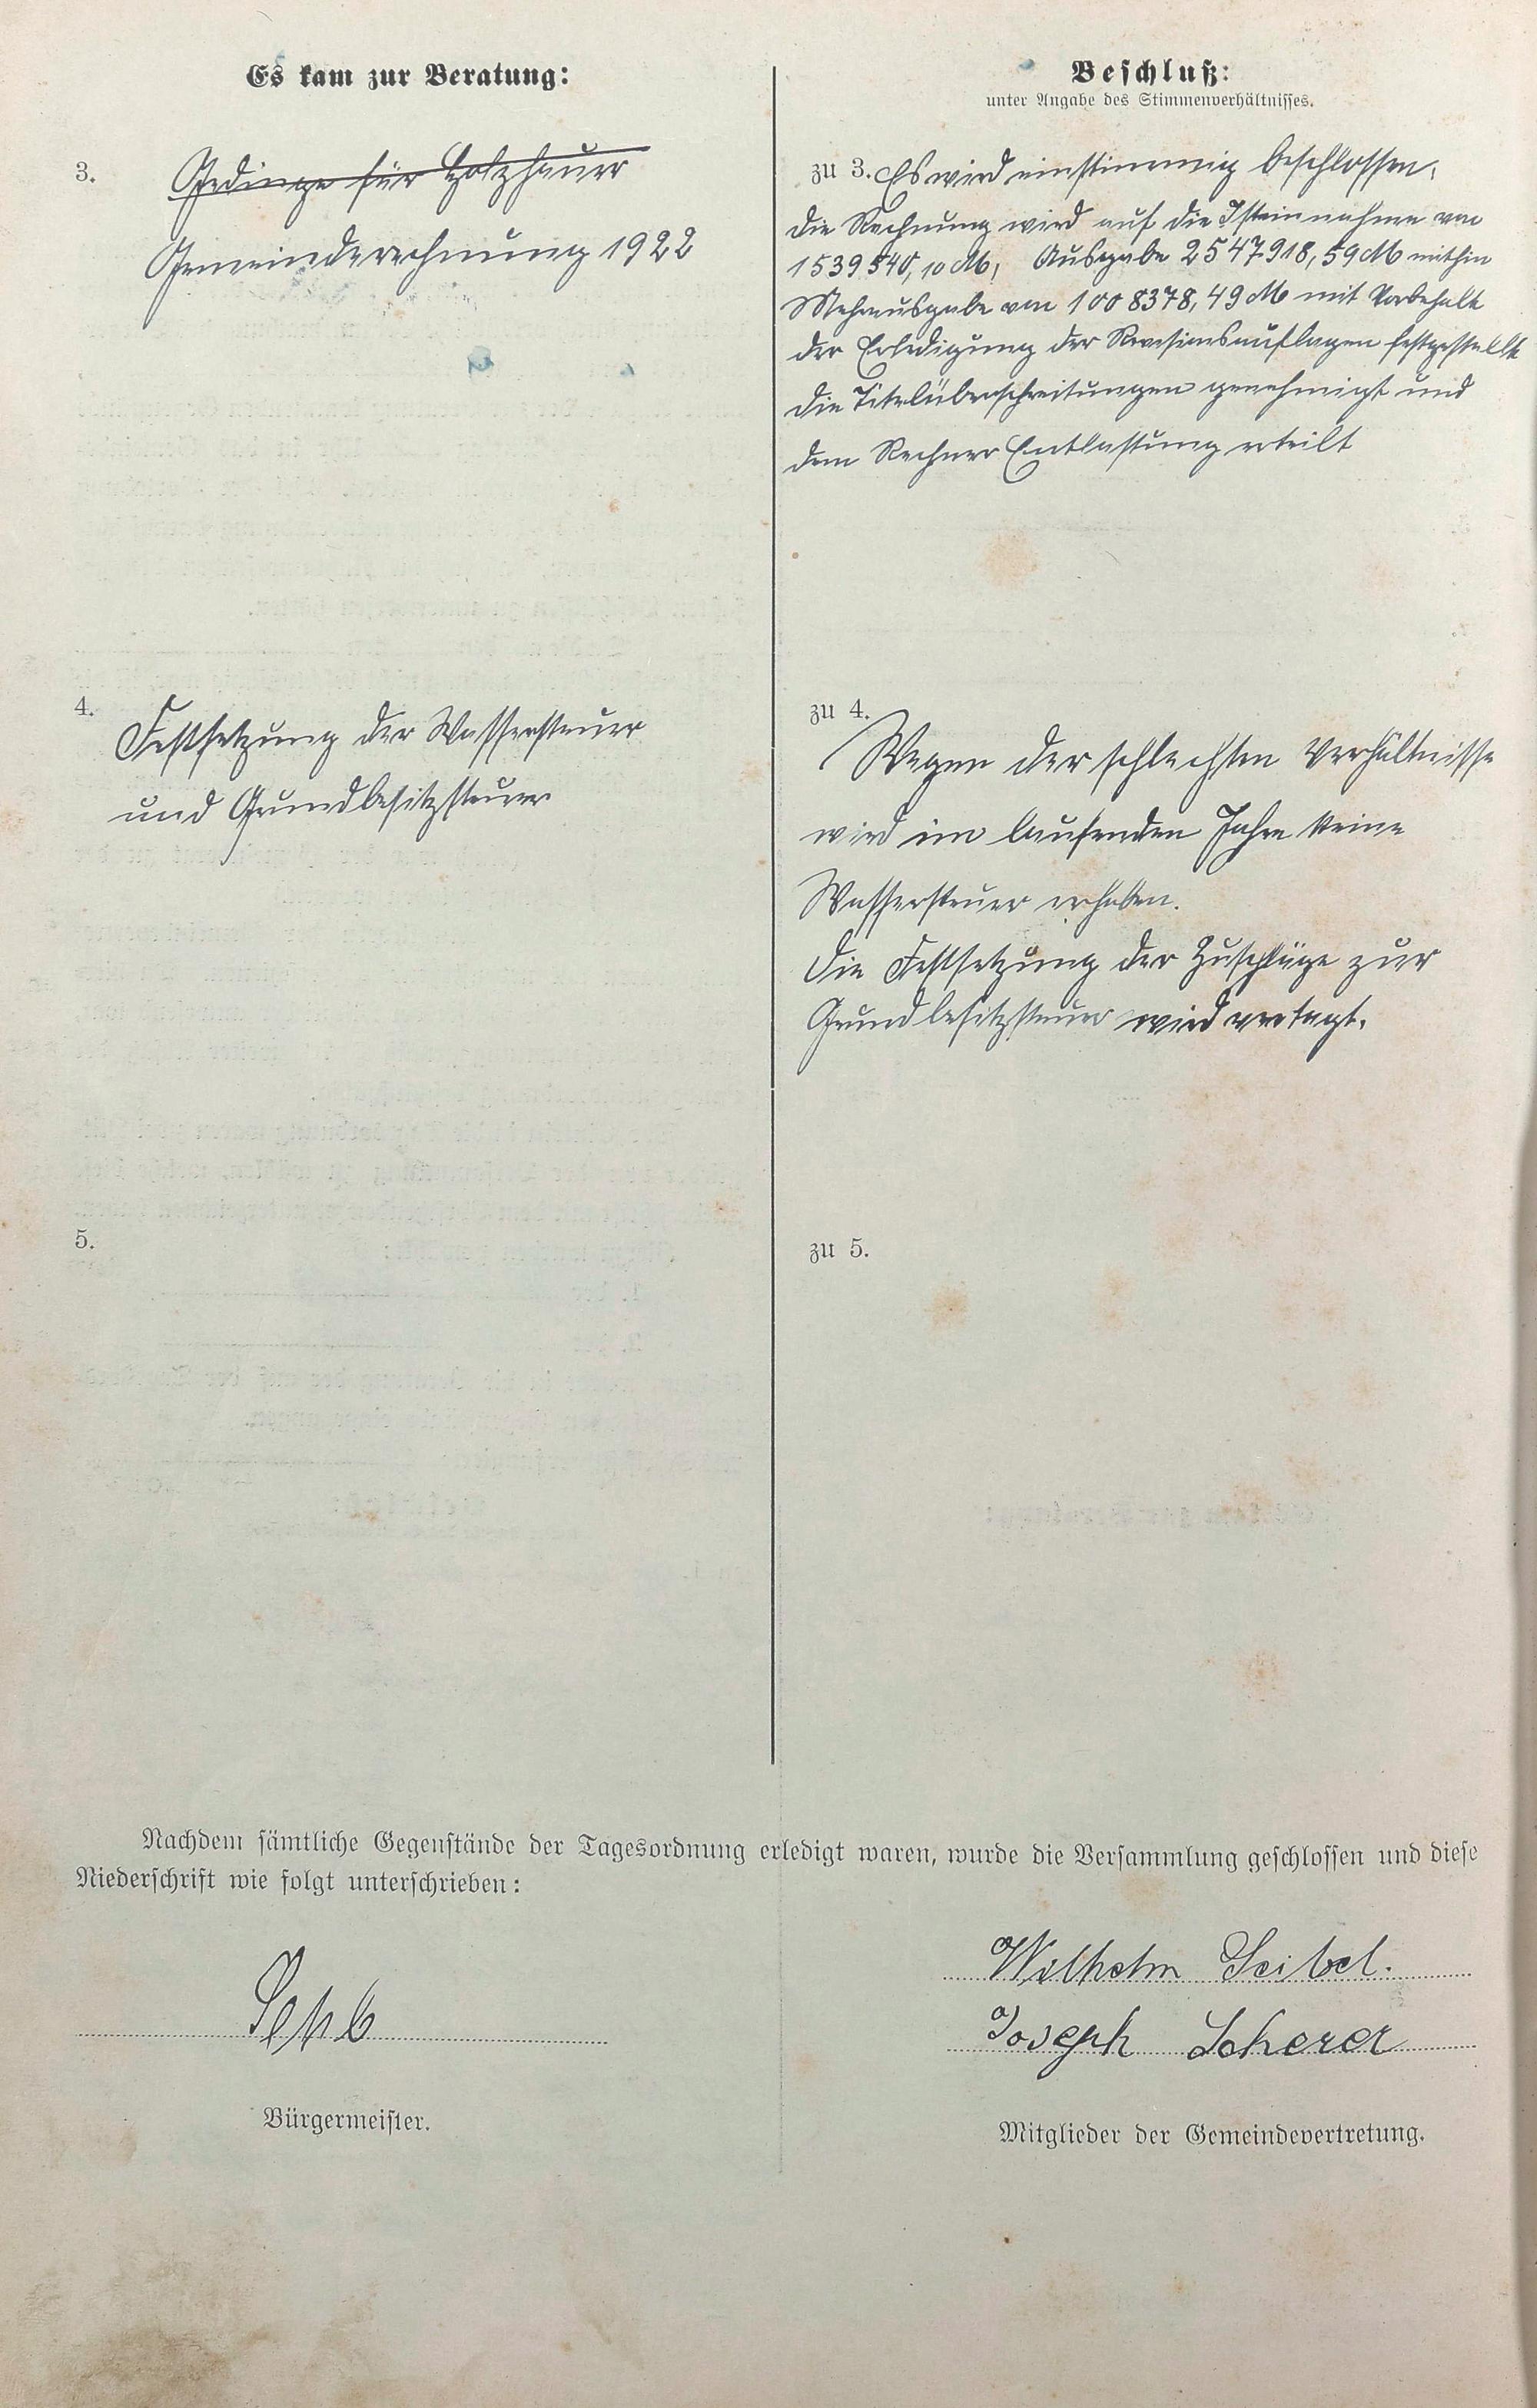 Es kam zur Beratung:
3. Gedinge für Holzhauer
Gemeinderechnung 1922
4. Festsetzung der Wassersteuer
und Grundbesitzsteuer
5.
Beschluß:
unter Angabe des Stimmenverhältnisses.
zu 3. Es wird einstimmig beschlossen,
die Rechnung wird auf die Isteinnahme von
1539540,10 M, Ausgabe 2547918,59 M mithin
Mehrausgabe von 1008378,49 M mit Vorbehalt
der Erledigung der Revisionsauflagen festgestellt
die Titelüberschreitungen genehmigt und
dem Rechner Entlastung erteilt
zu 4.
Wegen der schlechten Verhältnisse
wird im laufenden Jahre keine
Wassersteuer erhoben.
Die Festsetzung der Zuschläge zur
Grundbesitzsteuer wird vertagt.
zu 5.
Nachdem sämtliche Gegenstände der Tagesordnung erledigt waren, wurde die Versammlung geschlossen und diese
Niederschrift wie folgt unterschrieben:
Bürgermeister.
Wilhelm Seibel.
Joseph Scherer
Mitglieder der Gemeindevertretung.